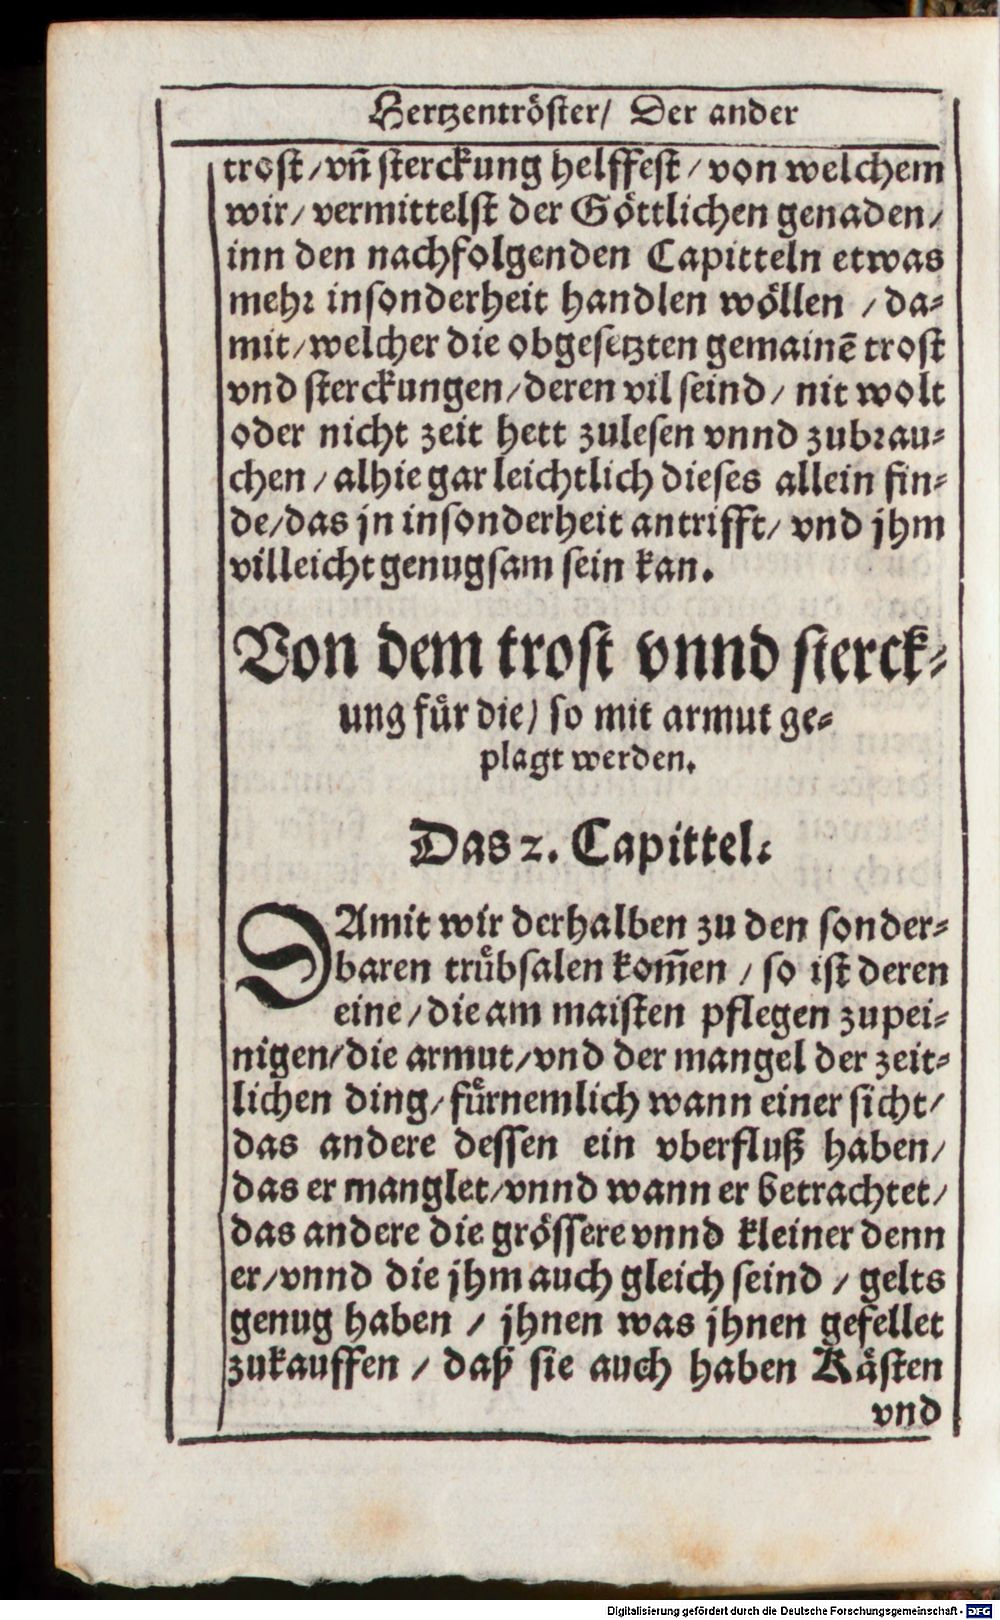 Hertzentröster/ Der ander
trost/ vñ sterckung helffest/ von welchem
wir/ vermittelst der Göttlichen genaden/
inn den nachfolgenden Capitteln etwas
mehr insonderheit handlen wöllen / da-
mit/ welcher die obgesetzten gemainē trost
vnd sterckungen/ deren vil seind/ nit wolt
oder nicht zeit hett zulesen vnnd zubrau-
chen/ alhie gar leichtlich dieses allein fin-
de/ das jn insonderheit antrifft/ vnd jhm
villeicht genugsam sein kan.
Von dem trost vnnd sterck-
ung für die/ so mit armut ge-
plagt werden.
Das 2. Capittel:
DAmit wir derhalben zu den sonder-
baren trübsalen kom̄en / so ist deren
eine/ die am maisten pflegen zupei-
nigen/ die armut/ vnd der mangel der zeit-
lichen ding/ fürnemlich wann einer sicht/
das andere dessen ein vberfluß haben/
das er manglet/ vnnd wann er betrachtet/
das andere die grössere vnnd kleiner denn
er/ vnnd die jhm auch gleich seind / gelts
genug haben / jhnen was jhnen gefellet
zukauffen / daß sie auch haben Kästen
vnd
Digitalisierung gefördert durch die Deutsche Forschungsgemeinschaft - DFG